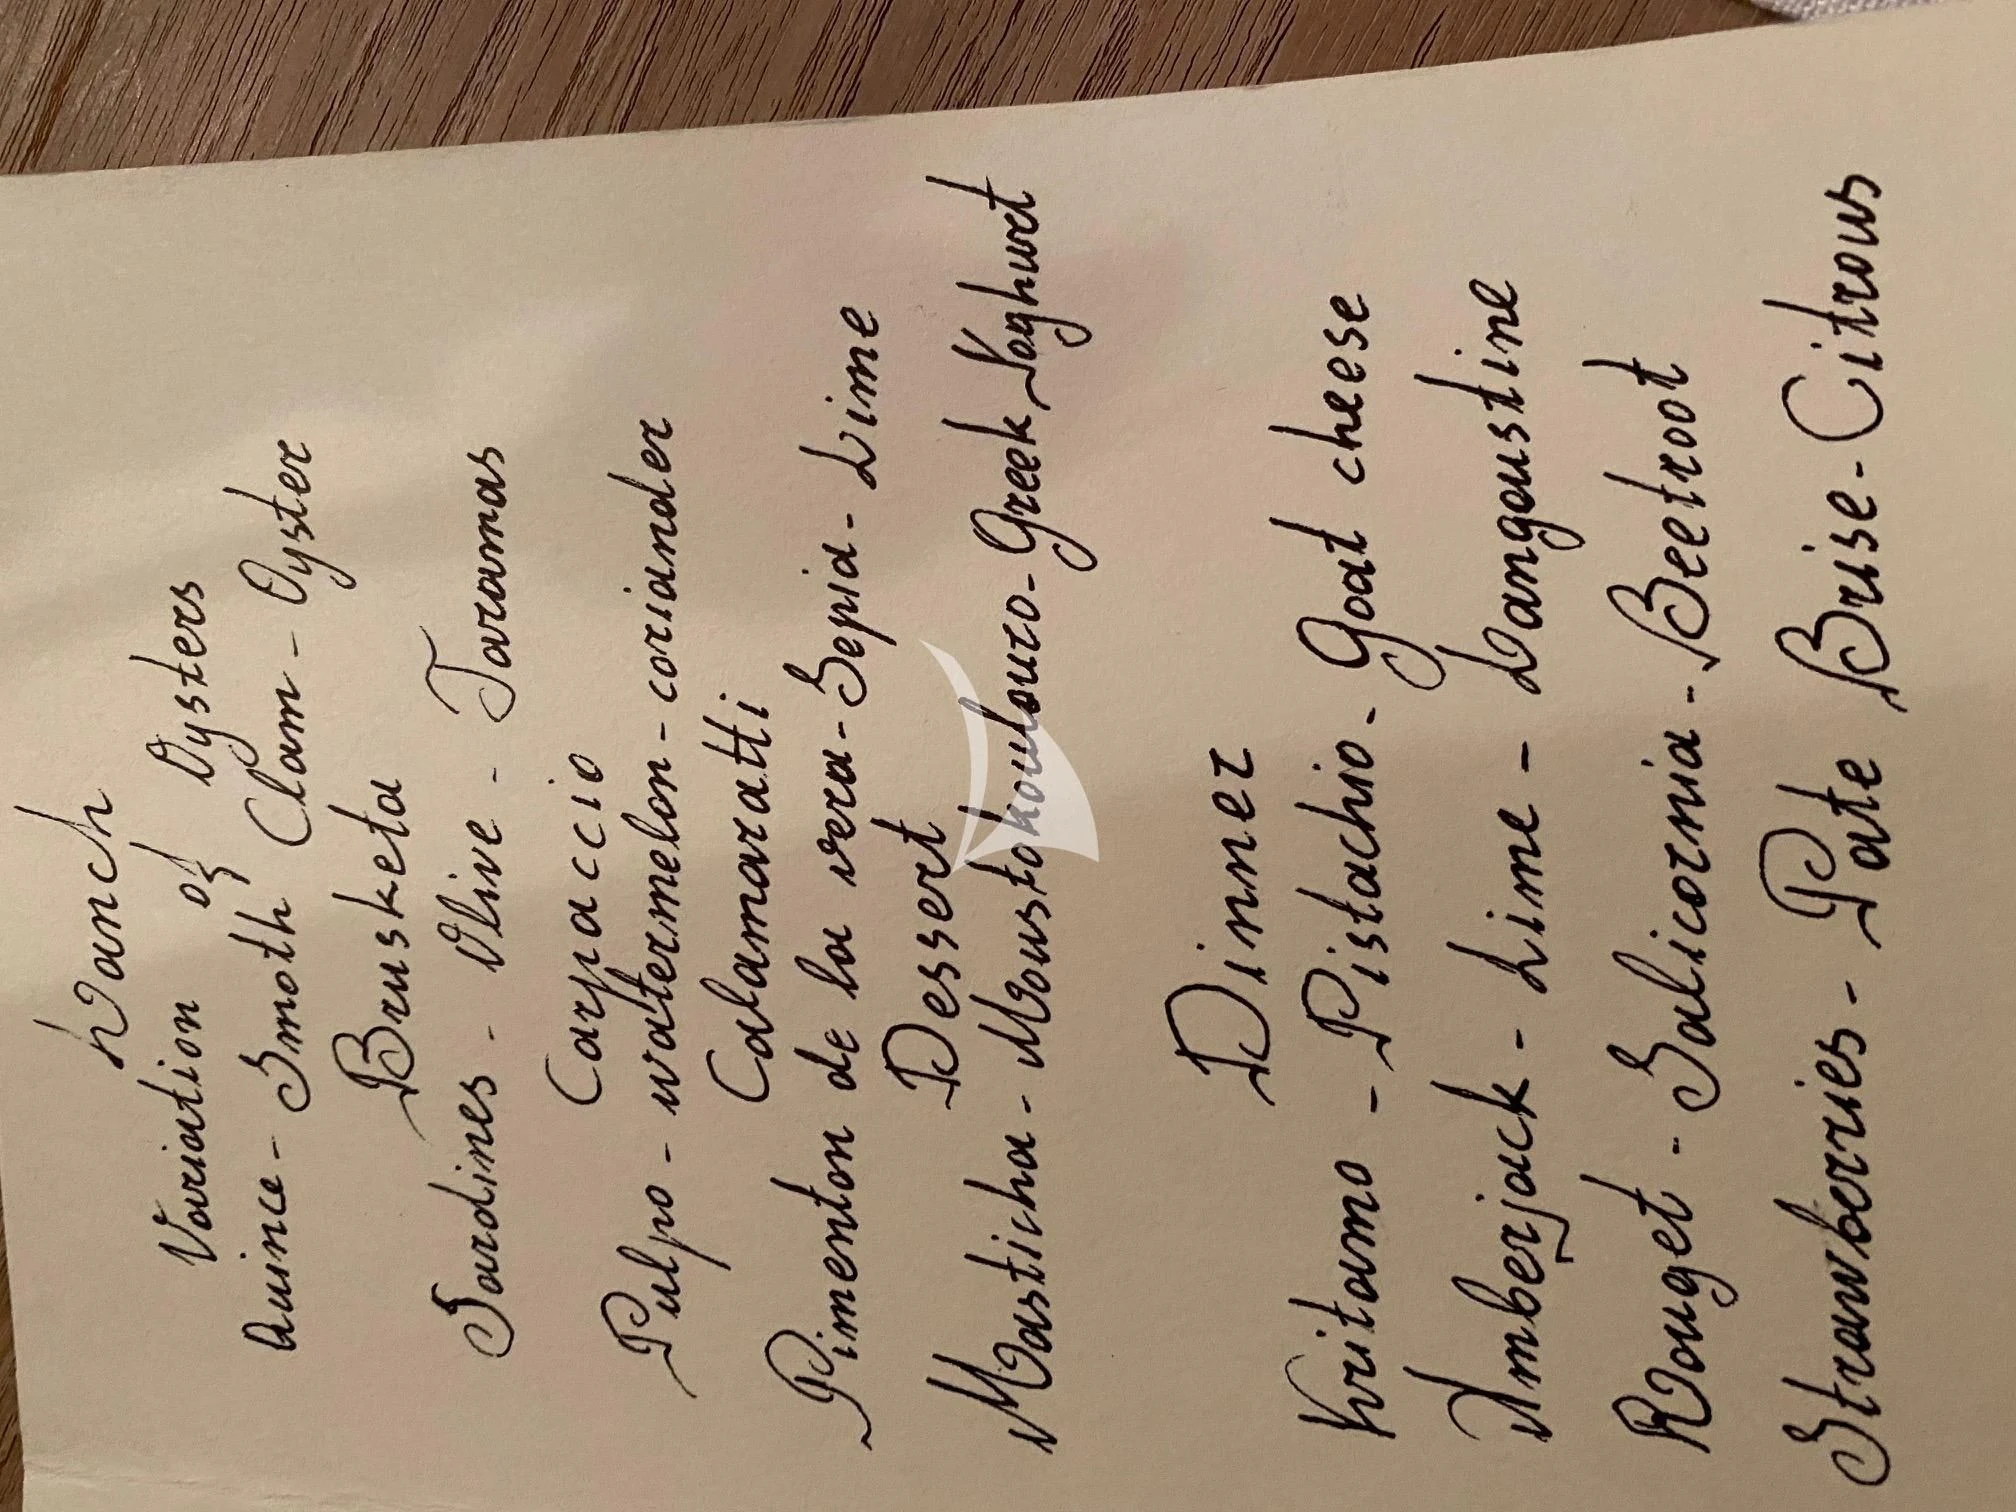 Lanch
Variation of Oysters
Quince - Smoth Clam - Oyster
Brusketa
Sardines - Olive - Taramas
Carpaccio
Pulpo - watermelon - coriander
Calamaratti
Pimenton de la vera - Sepia - Lime
Dessert
Masticha - Moustokoulouro - Greek Yoghurt
Dinner
Kritamo - Pistachio - Goat cheese
Amberjack - Lime - Langoustine
Rouget - Salicornia - Beetroot
Strawberries - Pate Brise - Citrous